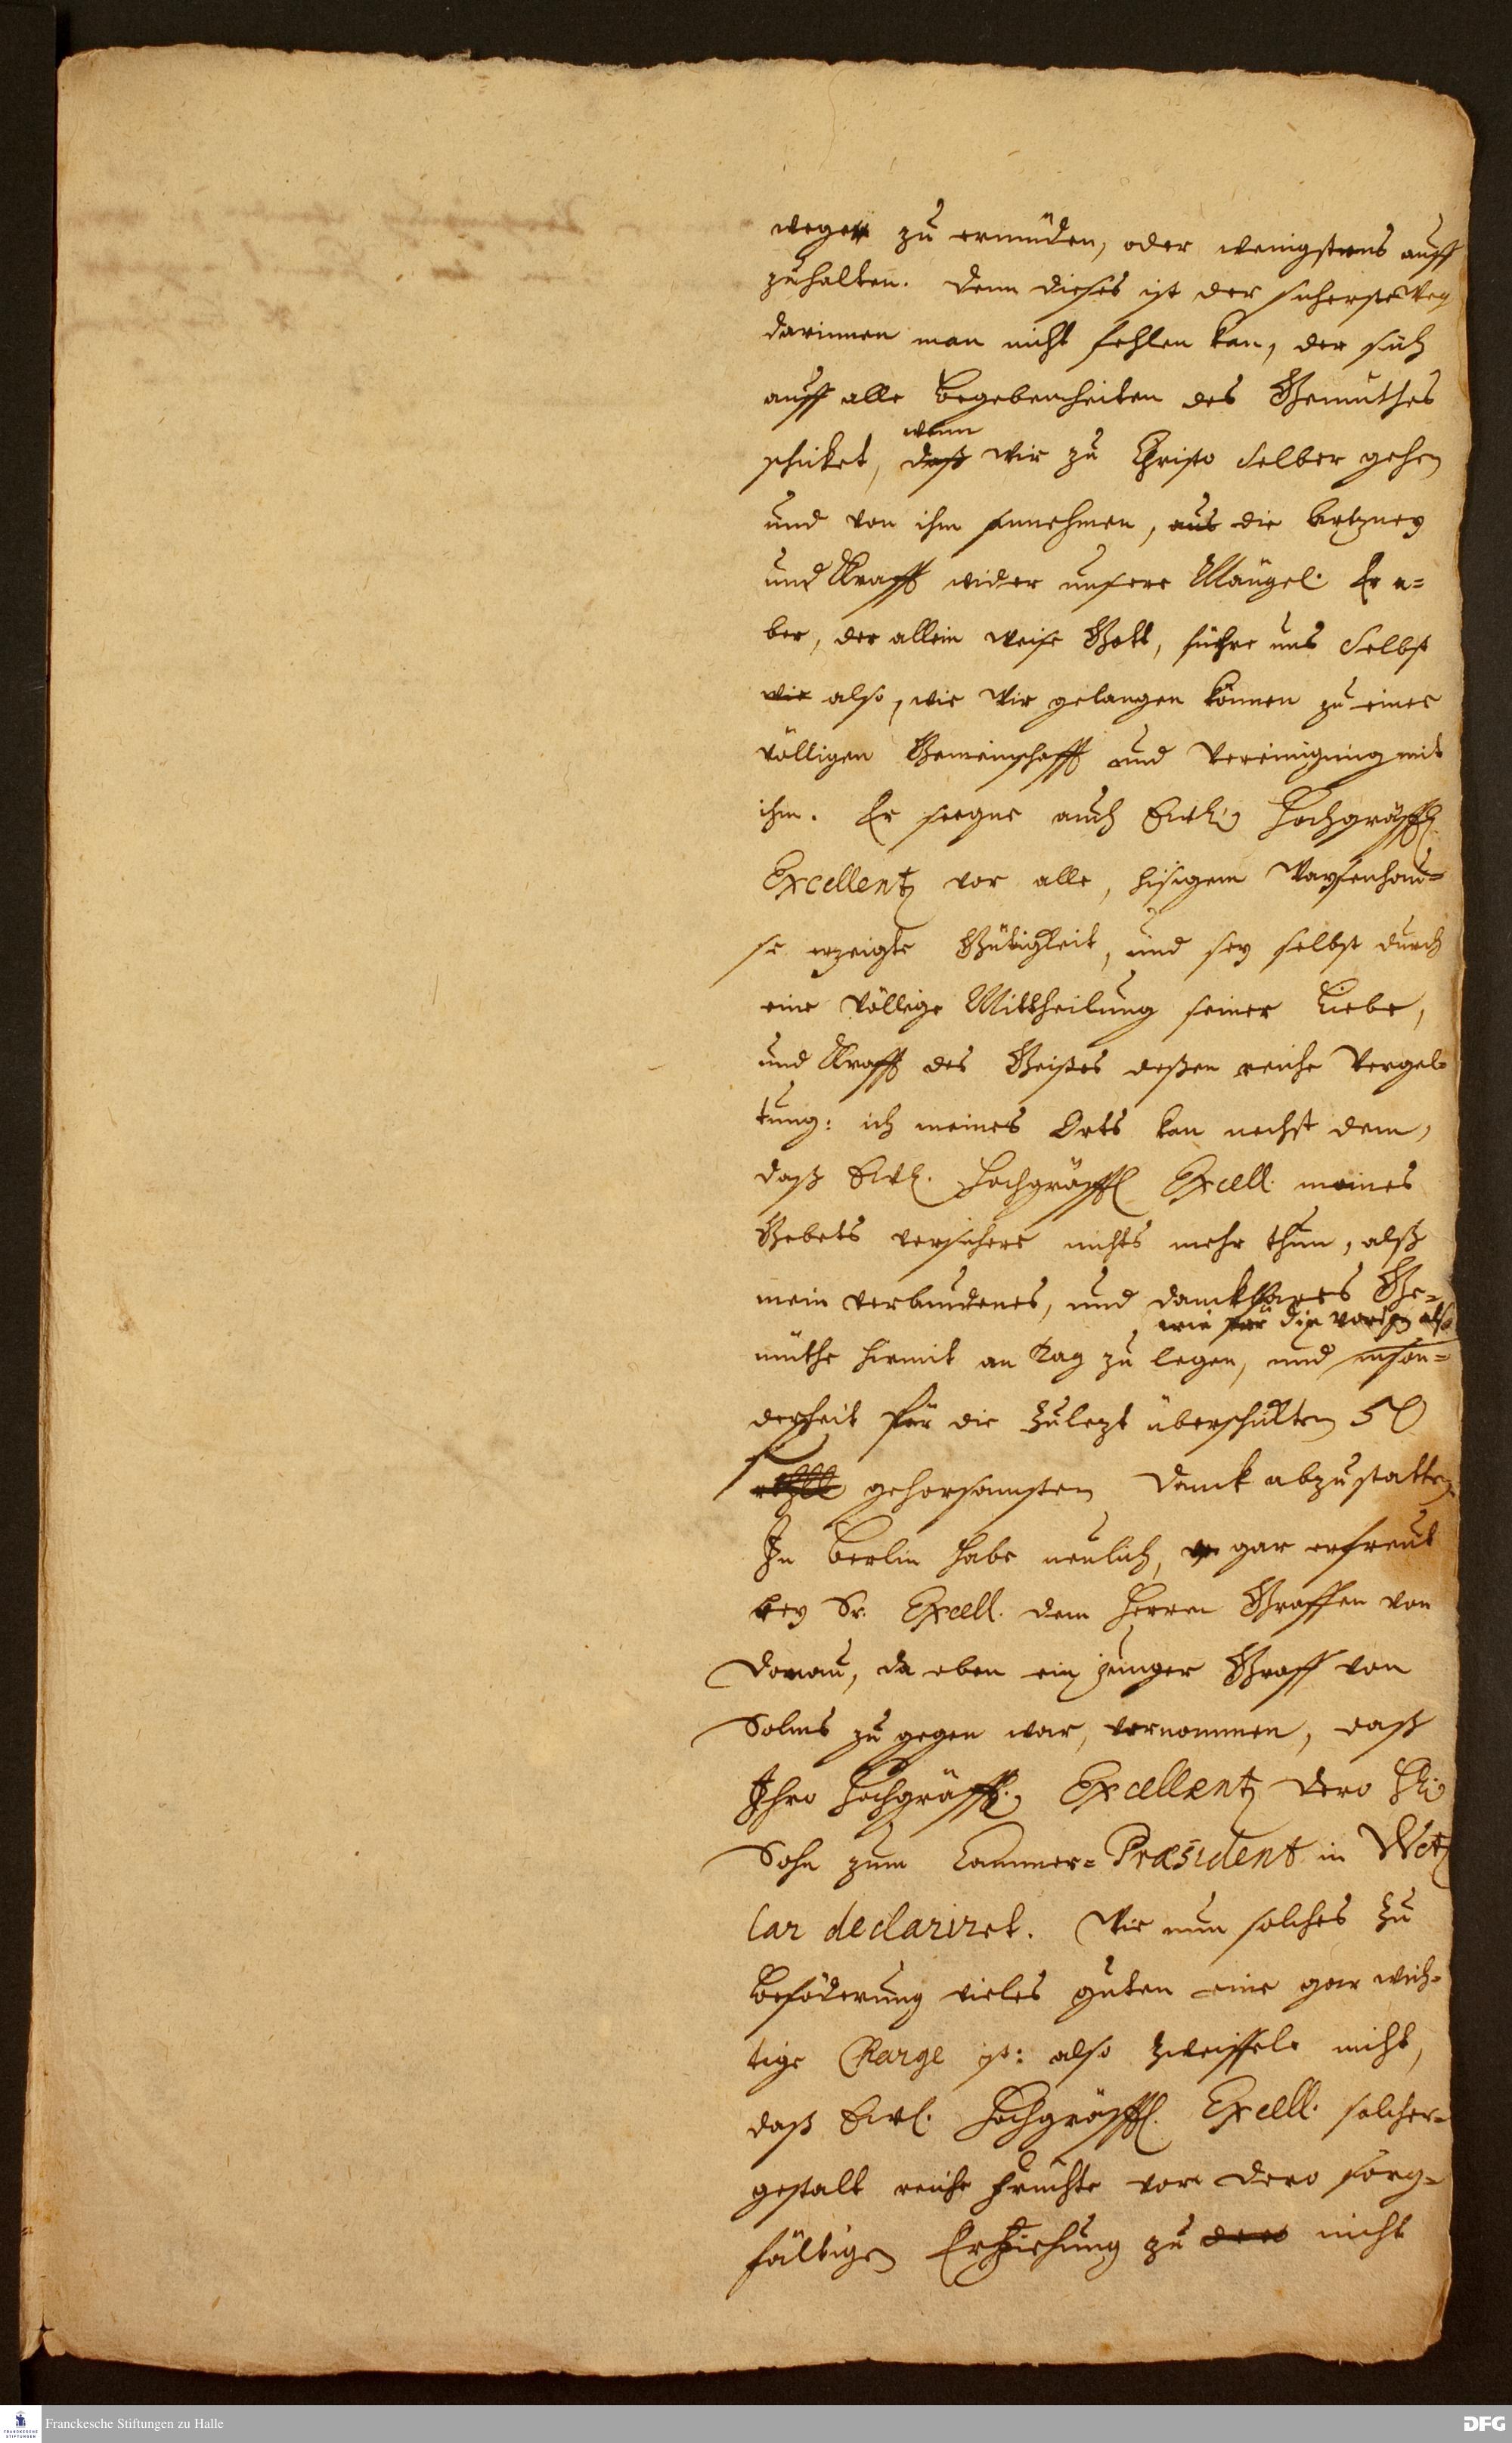 wegen zu ermüden, oder wenigstens auff
zuhalten. denn dieses ist der sicherste Weg
darinnen man nicht fehlen kan, der sich
auff alle Begebenheiten des Gemüthes
schicket, daß wir zu Christo selber gehen
wenn
und von ihm annehmen, aus die Artzney
und Krafft wider unsere Mängel. Er a-
ber, der allein weise Gott, führe uns selbst
wie also, wie wir gelangen können zu einer
völligen Gemeinschafft und Vereinigung mit
ihm. Er seegne auch Hochgräffl.
Excellentz vor alle, hisigem Waysenhau-
se erzeigte Gütigkeit, und sey selbst durch
eine völlige Mittheilung seiner Liebe,
und Krafft des Geistes deßen reiche Vergel-
tung: ich meines Orts kan nechst dem,
daß Ewl. Hochgräffl Excell. meines
Gebets versichere nichts mehr thun, alß
mein verbundenes, und danckbares Ge-
wie für die vorigen also
müthe hiermit an Tag zu legen, und inson-
derheit für die zulezt überschickten 50
gehorsamsten Danck abzustatten.
In Berlin habe neulich, gar erfreut
bey Sr. Excell. dem Herren Graffen von
Donau, da eben ein junger Graff von
Solms zu gegen war, vernommen, daß
Ihro Hochgräffl. Excellentz dero
Sohn zum Cammer-Præsident in Wetz
lar declariret. Wie nun solches zu
Beföderung vieles guten eine gar wich-
tige Charge ist: also zweiffele nicht,
daß Ewl. Hochgräffl. Excell. solcher-
gestalt reiche Früchte vor dero sorg-
fältigen Erziehung zu dero nicht
Franckesche Stiftungen zu Halle
DFG